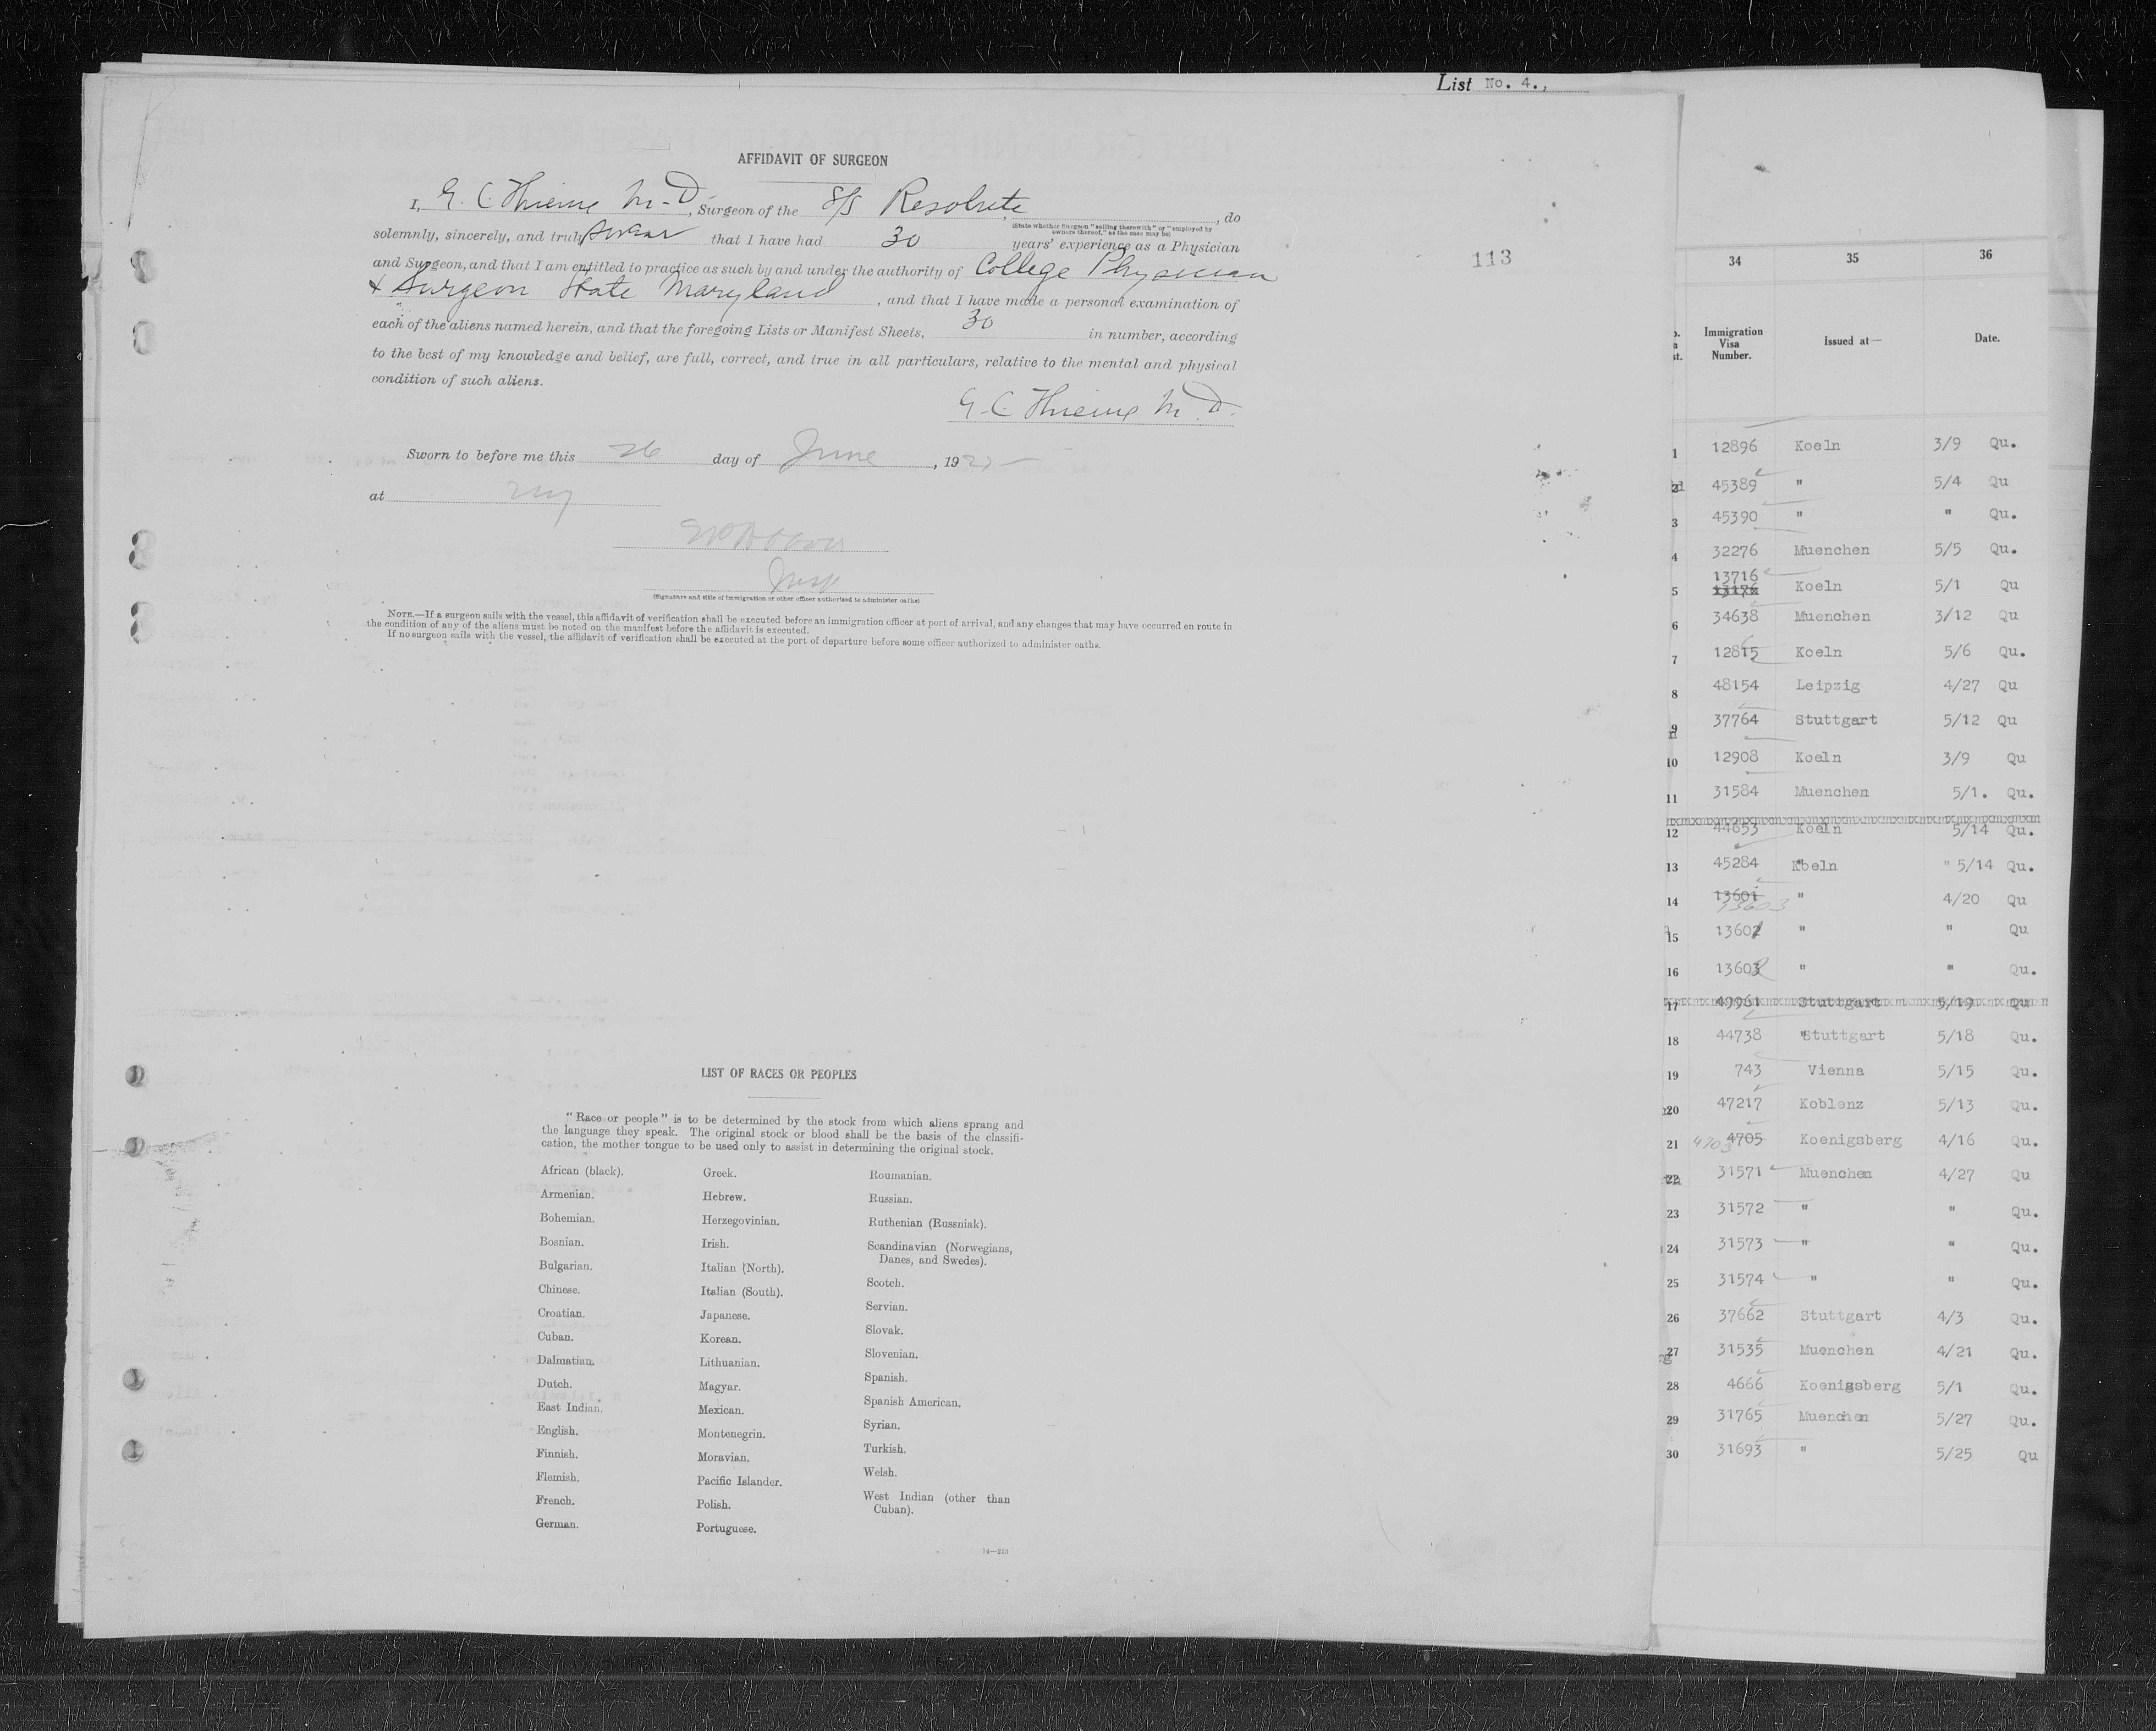 List No. 4.,
AFFIDAVIT OF SURGEON
I, G. C. Thieme M.D., Surgeon of the S/S Resolute, do
(State whether Surgeon "sailing therewith" or "employed by
owners thereof," as the case may be)
solemnly, sincerely, and truly swear that I have had 30 years' experience as a Physician
and Surgeon, and that I am entitled to practice as such by and under the authority of College Physician
& Surgeon State Maryland, and that I have made a personal examination of
each of the aliens named herein, and that the foregoing Lists or Manifest Sheets, 30 in number, according
to the best of my knowledge and belief, are full, correct, and true in all particulars, relative to the mental and physical
condition of such aliens.
G. C. Thieme M.D.
Sworn to before me this 26 day of June, 19
at NY
Insp
(Signature and title of immigration or other officer authorized to administer oaths)
NOTE.—If a surgeon sails with the vessel, this affidavit of verification shall be executed before an immigration officer at port of arrival, and any changes that may have occurred en route in
the condition of any of the aliens must be noted on the manifest before the affidavit is executed.
If no surgeon sails with the vessel, the affidavit of verification shall be executed at the port of departure before some officer authorized to administer oaths.
113
LIST OF RACES OR PEOPLES
"Race or people" is to be determined by the stock from which aliens sprang and
the language they speak. The original stock or blood shall be the basis of the classifi-
cation, the mother tongue to be used only to assist in determining the original stock.
African (black).
Armenian.
Bohemian.
Bosnian.
Bulgarian.
Chinese.
Croatian.
Cuban.
Dalmatian.
Dutch.
East Indian.
English.
Finnish.
Flemish.
French.
German.
Greek.
Hebrew.
Herzegovinian.
Irish.
Italian (North).
Italian (South).
Japanese.
Korean.
Lithuanian.
Magyar.
Mexican.
Montenegrin.
Moravian.
Pacific Islander.
Polish.
Portuguese.
Roumanian.
Russian.
Ruthenian (Russniak).
Scandinavian (Norwegians,
Danes, and Swedes).
Scotch.
Servian.
Slovak.
Slovenian.
Spanish.
Spanish American.
Syrian.
Turkish.
Welsh.
West Indian (other than
Cuban).
14—213
34 35 36
Immigration Visa Number. Issued at— Date.
1 12896 Koeln 3/9 Qu.
2 45389 " 5/4 Qu
3 45390 " " Qu.
4 32276 Muenchen 5/5 Qu.
13716
5 13176 Koeln 5/1 Qu
6 34638 Muenchen 3/12 Qu
7 12815 Koeln 5/6 Qu.
8 48154 Leipzig 4/27 Qu
9 37764 Stuttgart 5/12 Qu
10 12908 Koeln 3/9 Qu
11 31584 Muenchen 5/1. Qu.
12 44653 Koeln 5/14 Qu.
13 45284 Koeln " 5/14 Qu.
14 13601 " 4/20 Qu
13603
15 13602 " " Qu
16 13603 " " Qu.
17 49961 Stuttgart 5/19 Qu
18 44738 "Stuttgart 5/18 Qu.
19 743 Vienna 5/15 Qu.
20 47217 Koblenz 5/13 Qu.
21 4703 4705 Koenigsberg 4/16 Qu.
22 31571 Muenchen 4/27 Qu
23 31572 " " Qu.
24 31573 " " Qu.
25 31574 " " Qu.
26 37662 Stuttgart 4/3 Qu.
27 31535 Muenchen 4/21 Qu.
28 4666 Koenigsberg 5/1 Qu.
29 31765 Muenchen 5/27 Qu.
30 31693 " 5/25 Qu